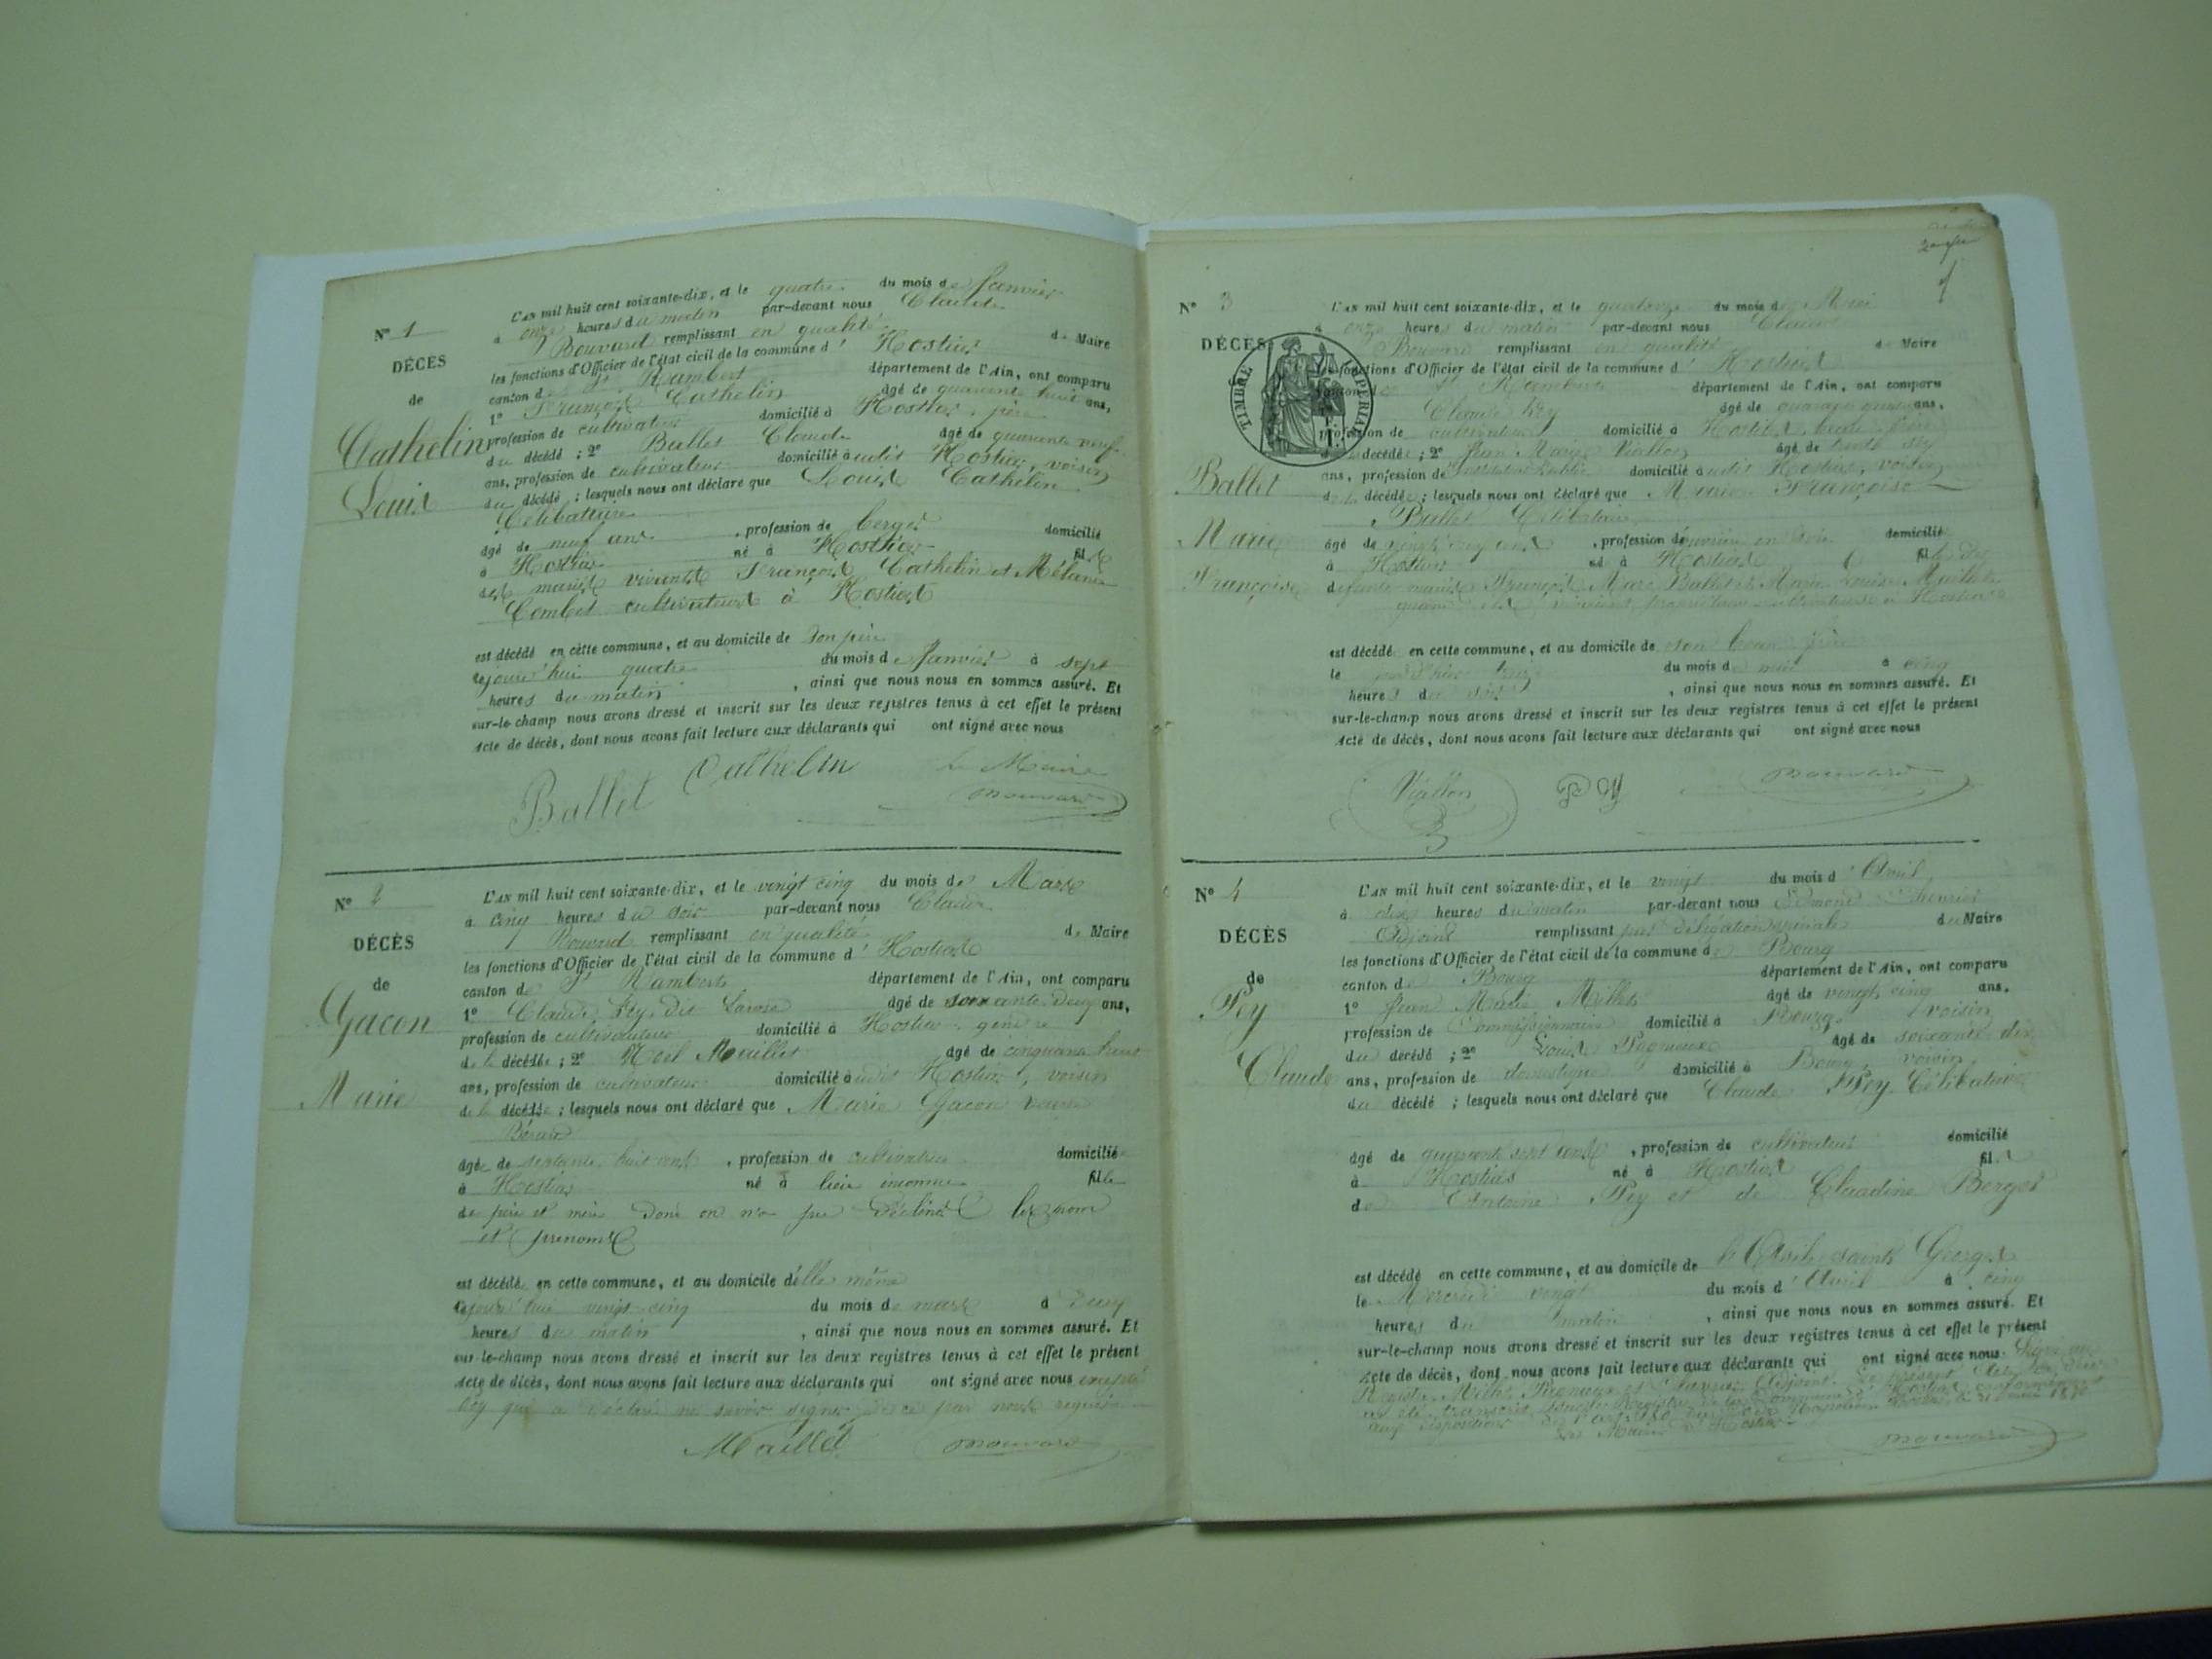 N° 1
DÉCÈS
de
Cathelin
Louis
L'an mil huit cent soixante-dix, et le quatre du mois de Janvier
à onze heures du matin par-devant nous Claude
Bouvard remplissant en qualité de Maire
les fonctions d'Officier de l'état civil de la commune d' Hostias
canton de St Rambert département de l'Ain, ont comparu
1° François Cathelin âgé de quarante huit ans,
profession de cultivateur domicilié à Hostias, père
du décédé ; 2° Ballet Claude âgé de quarante neuf
ans, profession de cultivateur domicilié à udit Hostias, voisin
du décédé ; lesquels nous ont déclaré que Louis Cathelin
Célibataire
âgé de neuf ans , profession de berger domicilié
à Hostias né à Hostias fils
des mariés vivants François Cathelin et Mélanie
Combet cultivateurs à Hostias
est décédé en cette commune, et au domicile de son père
lejourd'hui quatre du mois de Janvier à sept
heures du matin , ainsi que nous nous en sommes assuré. Et
sur-le-champ nous avons dressé et inscrit sur les deux registres tenus à cet effet le présent
acte de décès, dont nous avons fait lecture aux déclarants qui ont signé avec nous
Ballet Cathelin le Maire
Bouvard
N° 2
DÉCÈS
de
Gacon
Marie
L'an mil huit cent soixante-dix, et le vingt cinq du mois de Mars
à cinq heures du soir par-devant nous Claude
Bouvard remplissant en qualité de Maire
les fonctions d'Officier de l'état civil de la commune d' Hostias
canton de St Rambert département de l'Ain, ont comparu
1° Claude Pey dit âgé de soixante deux ans,
profession de cultivateur domicilié à Hostias, gendre
de la décédée ; 2° Noël Maillet âgé de cinquante huit
ans, profession de cultivateur domicilié à udit Hostias, voisin
de la décédée ; lesquels nous ont déclaré que Marie Gacon veuve
âgée de septante huit ans , profession de cultivatrice domiciliée
à Hostias né à lieu inconnu fille
de père et mère dont on n'a pu décliner les noms
et prénoms
est décédé en cette commune, et au domicile d'elle même
lejourd'hui vingt cinq du mois de mars à deux
heures du matin , ainsi que nous nous en sommes assuré. Et
sur-le-champ nous avons dressé et inscrit sur les deux registres tenus à cet effet le présent
acte de décès, dont nous avons fait lecture aux déclarants qui ont signé avec nous excepté
Pey qui a déclaré ne savoir signer de ce par nous requis
Maillet Bouvard
N° 3
DÉCÈS
TIMBRE IMPÉRIAL
Ballet
Marie
Françoise
L'an mil huit cent soixante-dix, et le quatorze du mois de Mai
à onze heures du matin par-devant nous Claude
Bouvard remplissant en qualité de Maire
les fonctions d'Officier de l'état civil de la commune d' Hostias
canton de St Rambert département de l'Ain, ont comparu
Claude Pey âgé de quarante ans,
profession de cultivateur domicilié à Hostias, beau frère
décédée ; 2° Jean Marie Viallon âgé de trente six
ans, profession de Instituteur public domicilié à udit Hostias, voisin
de la décédée ; lesquels nous ont déclaré que Marie Françoise
Ballet Célibataire
âgé de vingt cinq ans , profession de ouvrière en soie domicilié
à Hostias né à Hostias fille des
François Marc Ballet et Marie Louise Maillet
est décédé en cette commune, et au domicile de son beau frère
le jour d'hier treize du mois de mai à cinq
heures du soir , ainsi que nous nous en sommes assuré. Et
sur-le-champ nous avons dressé et inscrit sur les deux registres tenus à cet effet le présent
acte de décès, dont nous avons fait lecture aux déclarants qui ont signé avec nous
Viallon Pey Bouvard
N° 4
DÉCÈS
de
Pey
Claude
L'an mil huit cent soixante-dix, et le vingt du mois d' Avril
à dix heures du matin par-devant nous Edmond
Adjoint remplissant par délégation spéciale du Maire
les fonctions d'Officier de l'état civil de la commune de Bourg
canton de Bourg département de l'Ain, ont comparu
1° Jean Marie Millet âgé de vingt cinq ans.
profession de Commissionnaire domicilié à Bourg, voisin
du décédé ; 2° Louis âgé de soixante dix
ans, profession de domestique domicilié à Bourg, voisin
du décédé ; lesquels nous ont déclaré que Claude Pey Célibataire
âgé de quarante sept ans , profession de cultivateur domicilié
à Hostias né à Hostias fils
de Antoine Pey et de Claudine Berger
est décédé en cette commune, et au domicile de l'Asile saint Georges
le Mercredi vingt du mois d' Avril à cinq
heures du matin , ainsi que nous nous en sommes assuré. Et
sur-le-champ nous avons dressé et inscrit sur les deux registres tenus à cet effet le présent
acte de décès, dont nous avons fait lecture aux déclarants qui ont signé avec nous.
Bouvard